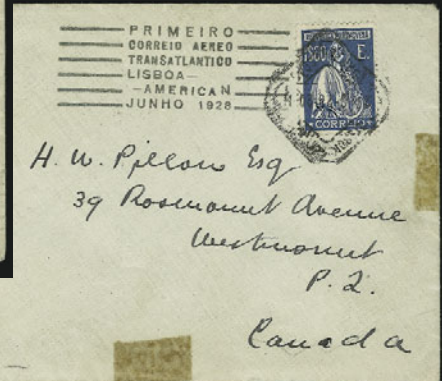 PRIMEIRO
CORREIO AEREO
TRANSATLANTICO
LISBOA-
-AMERICAN
JUNHO 1928
1$60 E.
CORREIO
H. W. Pillow Esq
39 Rosemount Avenue
Westmount
P. Q.
Canada